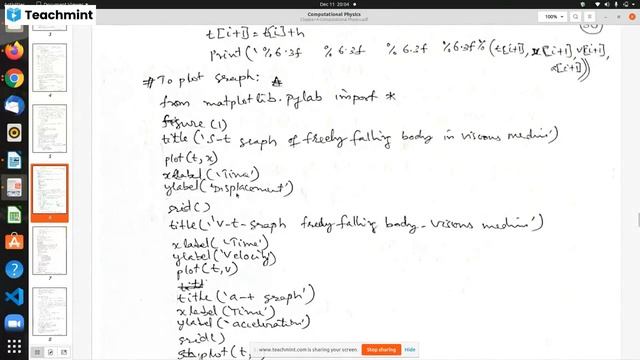 Dec 11 20:04
Teachmint
Computational Physics
100%
t[i+1] = t[i]+h
print('%6.3f %6.3f %6.3f %6.3f'%(t[i+1], x[i+1], v[i+1],
a[i+1]))
# To plot graph:
from matplotlib.pylab import *
figure(1)
title('S-t graph of freely falling body in viscous medium')
plot(t,x)
xlabel('Time')
ylabel('Displacement')
grid()
title('V-t-graph freely falling body - viscous medium')
xlabel('Time')
ylabel('Velocity')
plot(t,v)
title('a-t graph')
xlabel('Time')
ylabel('acceleration')
grid()
plot(t,
www.teachmint.com is sharing your screen.
Stop sharing
Hide